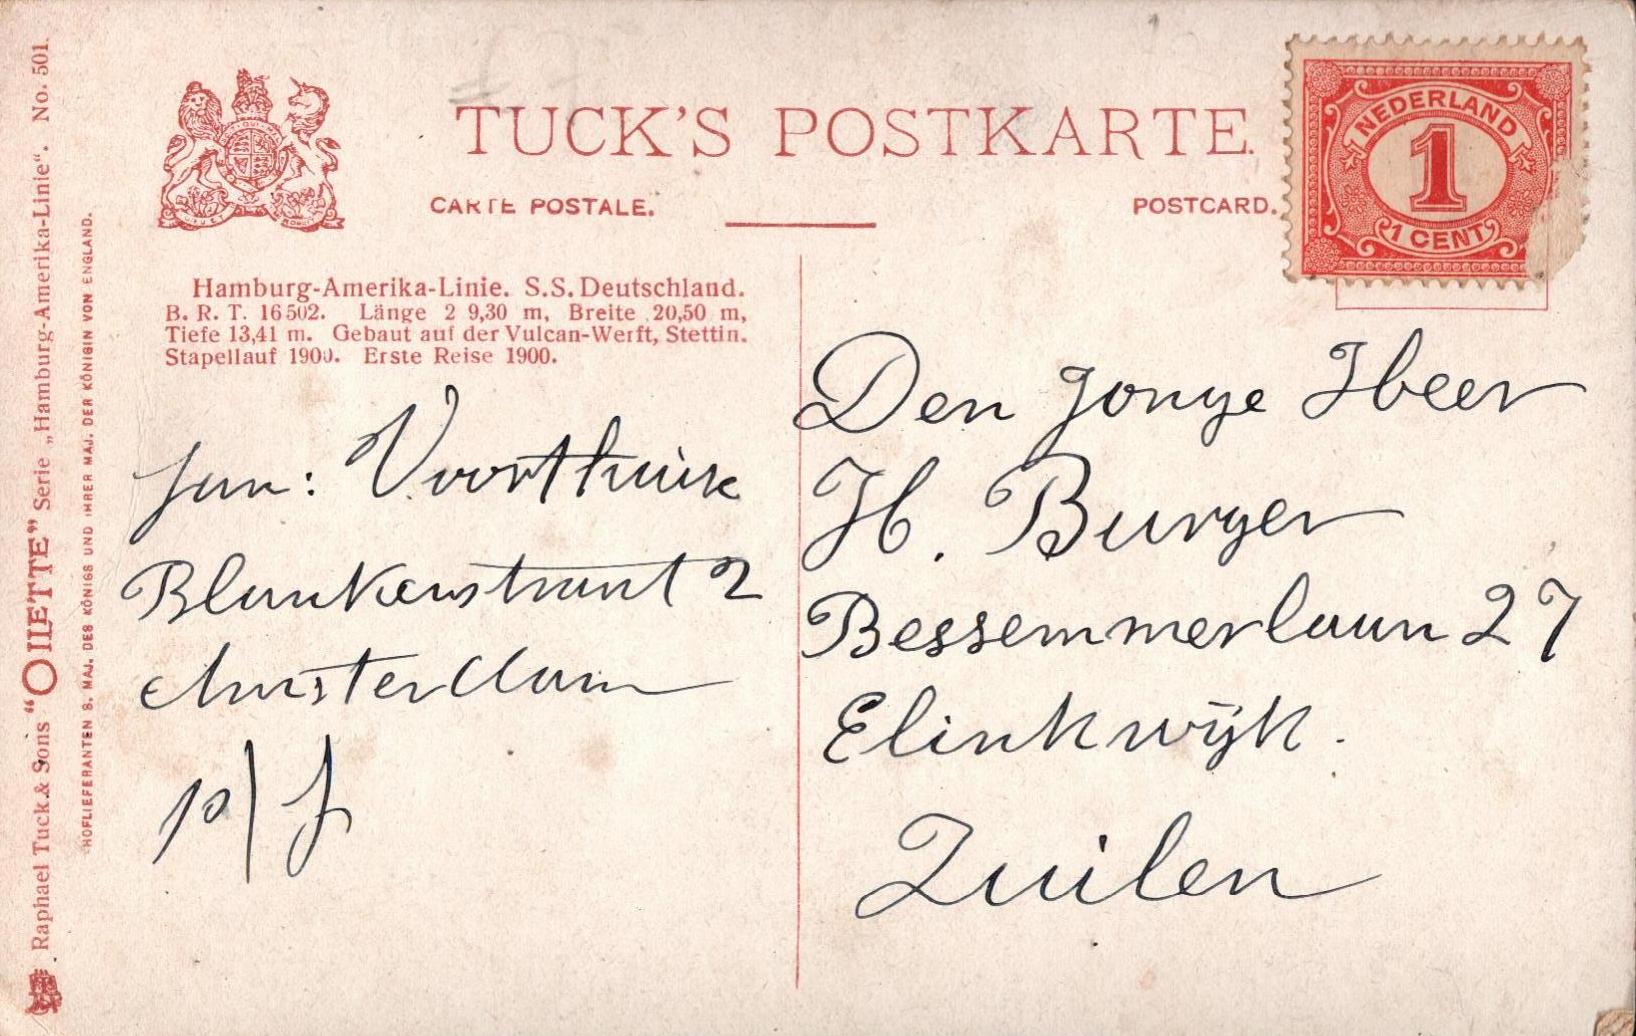 TUCK'S POSTKARTE.
CARTE POSTALE.
POSTCARD.
NEDERLAND
1
1 CENT
Hamburg-Amerika-Linie. S.S. Deutschland.
B. R. T. 16502. Länge 2 9,30 m, Breite 20,50 m,
Tiefe 13,41 m. Gebaut auf der Vulcan-Werft, Stettin.
Stapellauf 1900. Erste Reise 1900.
fam: Voorthuis
Blankenstraat 2
Amsterdam
p/f
Den Jonge Heer
H. Burger
Bessemmerlaan 27
Elinkwijk.
Zuilen
Raphael Tuck & Sons “OILETTE” Serie „Hamburg-Amerika-Linie“. No. 501.
HOFLIEFERANTEN S. MAJ. DES KÖNIGS UND IHRER MAJ. DER KÖNIGIN VON ENGLAND.